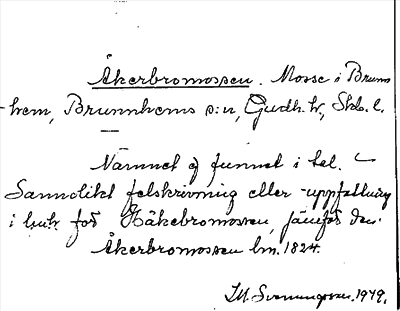 Åkerbromossen. Mosse i Brunn-
hem, Brunnhems s:n, Gudh. hd, Skb. l.
Namnet ej funnet i tel.
Sannolikt felskrivning eller -uppfattning
i för Håkebromossen, jämför den.
Åkerbromossen lm. 1824.
Svenungsson. 1949.